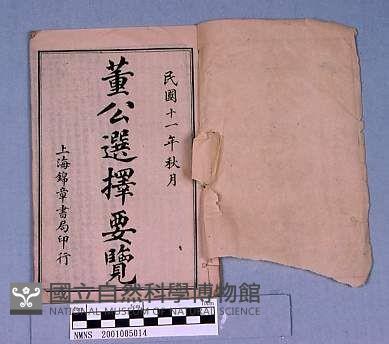 民國十一年秋月
董公選擇要覽
上海錦章書局印行
國立自然科學博物館
NATIONAL MUSEUM OF NATURAL SCIENCE
NMNS 2001005014